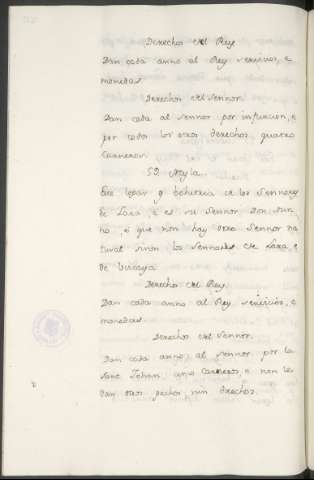 Derechos del Rey.
Dan cada anno al Rey servicios, e
monedas.
Derechos del Sennor.
Dan cada al Sennor por infurcion, e
por todos los otros derechos, quatro
Carneros.
Este logar es behetria de los Sennores
de Lara, e es su Sennor Don Nun-
no, e que non hay otro Sennor na
tural sinon los Sennores de Lara, e
de Vizcaya.
Derechos del Rey.
Dan cada anno al Rey servicios, e
monedas.
Derechos del Sennor.
Dan cada anno, al Sennor por la
Sant Johan, Carneros, e non les
dan otros pechos, nin drechos.